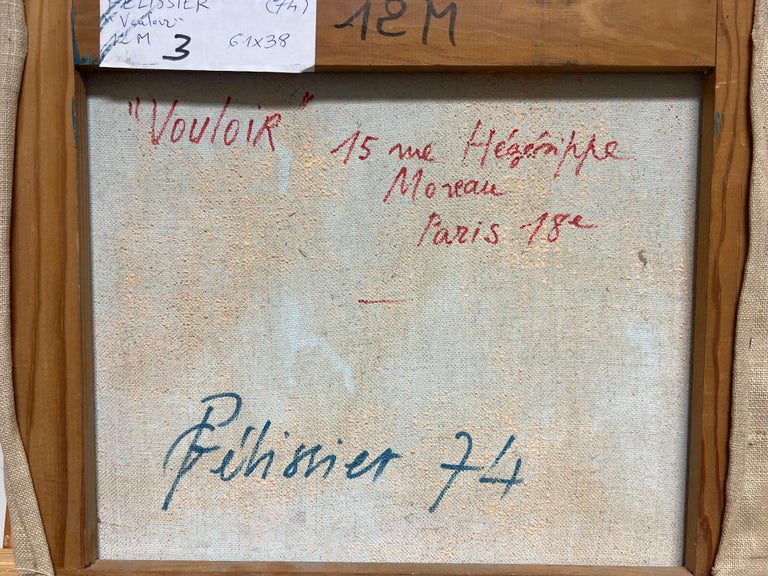 PELISSIER (74)
"Vouloir"
12 M 3 61x38
12M
"VOULOIR" 15 rue Hégésippe
Moreau
Paris 18e
Pélissier 74